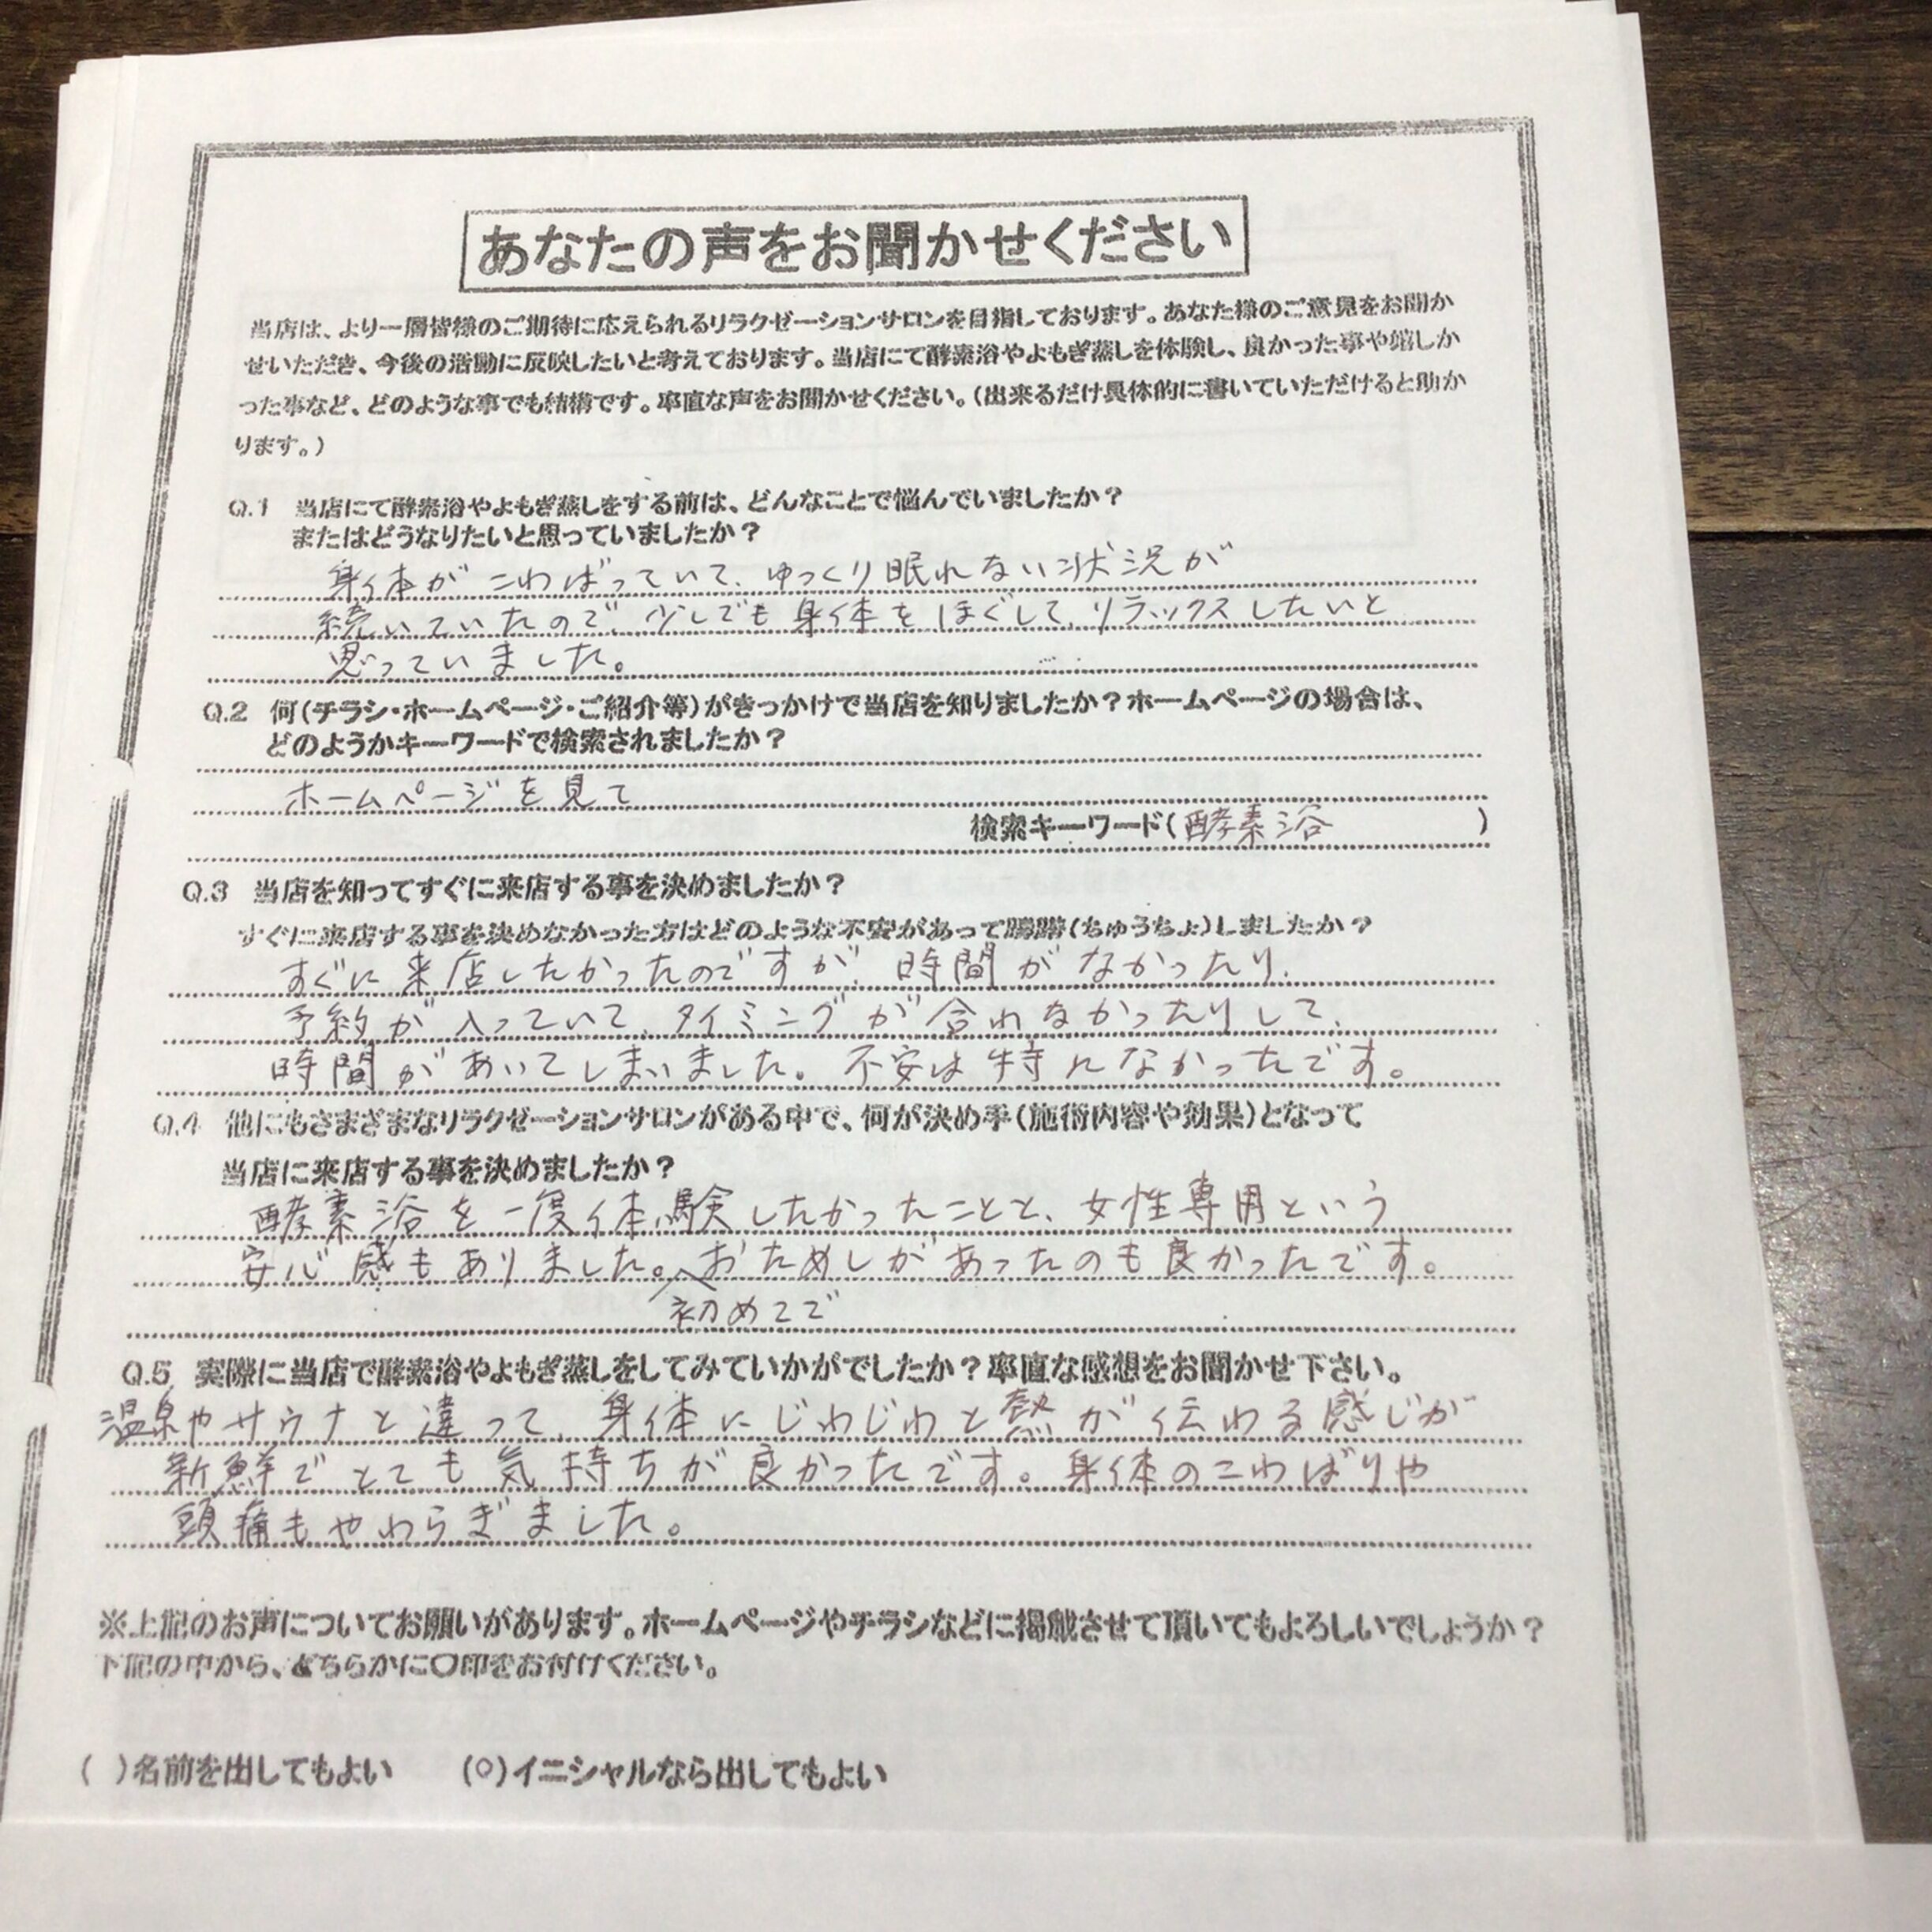 あなたの声をお聞かせください
当店は、より一層皆様のご期待に応えられるリラクゼーションサロンを目指しております。あなた様のご意見をお聞か
せいただき、今後の活動に反映したいと考えております。当店にて酵素浴やよもぎ蒸しを体験し、良かった事や嬉しか
った事など、どのような事でも結構です。率直な声をお聞かせください。（出来るだけ具体的に書いていただけると助か
ります。）
Q.1 当店にて酵素浴やよもぎ蒸しをする前は、どんなことで悩んでいましたか？
またはどうなりたいと思っていましたか？
身体がこわばっていて、ゆっくり眠れない状況が
続いていたので、少しでも身体をほぐして、リラックスしたいと
思っていました。
Q.2 何（チラシ・ホームページ・ご紹介等）がきっかけで当店を知りましたか？ホームページの場合は、
どのようかキーワードで検索されましたか？
ホームページを見て
検索キーワード（酵素浴 ）
Q.3 当店を知ってすぐに来店する事を決めましたか？
すぐに来店する事を決めなかった方はどのような不安があって躊躇（ちゅうちょ）しましたか？
すぐに来店したかったのですが、時間がなかったり、
予約が入っていて、タイミングが合わなかったりして、
時間があいてしまいました。不安は特になかったです。
Q.4 他にもさまざまなリラクゼーションサロンがある中で、何が決め手（施術内容や効果）となって
当店に来店する事を決めましたか？
酵素浴を一度体験したかったことと、女性専用という
安心感もありました。おためしがあったのも良かったです。
初めてで
Q.5 実際に当店で酵素浴やよもぎ蒸しをしてみていかがでしたか？率直な感想をお聞かせ下さい。
温泉やサウナと違って、身体にじわじわと熱が伝わる感じが
新鮮でとても気持ちが良かったです。身体のこわばりや
頭痛もやわらぎました。
※上記のお声についてお願いがあります。ホームページやチラシなどに掲載させて頂いてもよろしいでしょうか？
下記の中から、どちらかに〇印をお付けください。
（ ）名前を出してもよい （○）イニシャルなら出してもよい